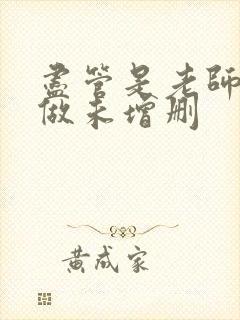 盡管是老師
做未增刪
黃成家